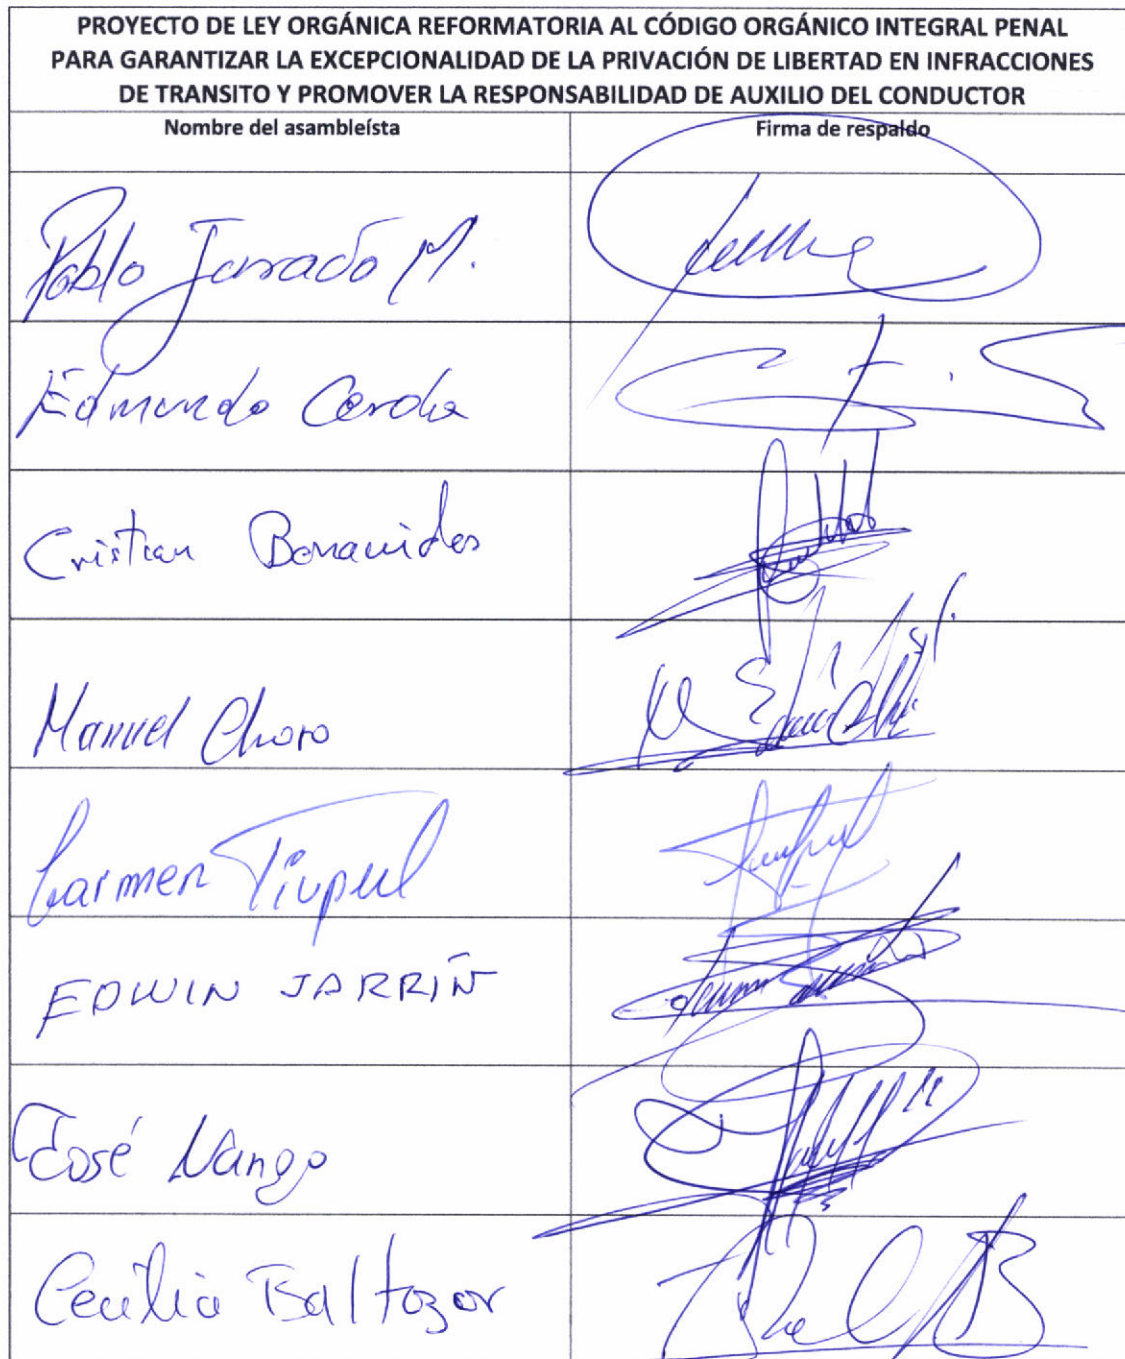 PROYECTO DE LEY ORGÁNICA REFORMATORIA AL CÓDIGO ORGÁNICO INTEGRAL PENAL
PARA GARANTIZAR LA EXCEPCIONALIDAD DE LA PRIVACIÓN DE LIBERTAD EN INFRACCIONES
DE TRANSITO Y PROMOVER LA RESPONSABILIDAD DE AUXILIO DEL CONDUCTOR
Nombre del asambleísta Firma de respaldo
Pablo Jurado M.
Edmundo Cerda
Cristian Benavides
Manuel Choro
Carmen Tiupul
EDWIN JARRÍN
José Nango
Cecilia Baltazar